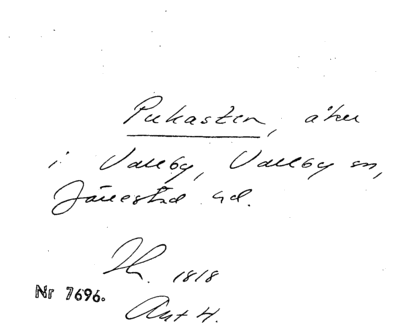 Pukasten, åker
i Vallby, Vallby sn,
Järrestad hd.
Th. 1818
Nr 7696.
Akt 4.